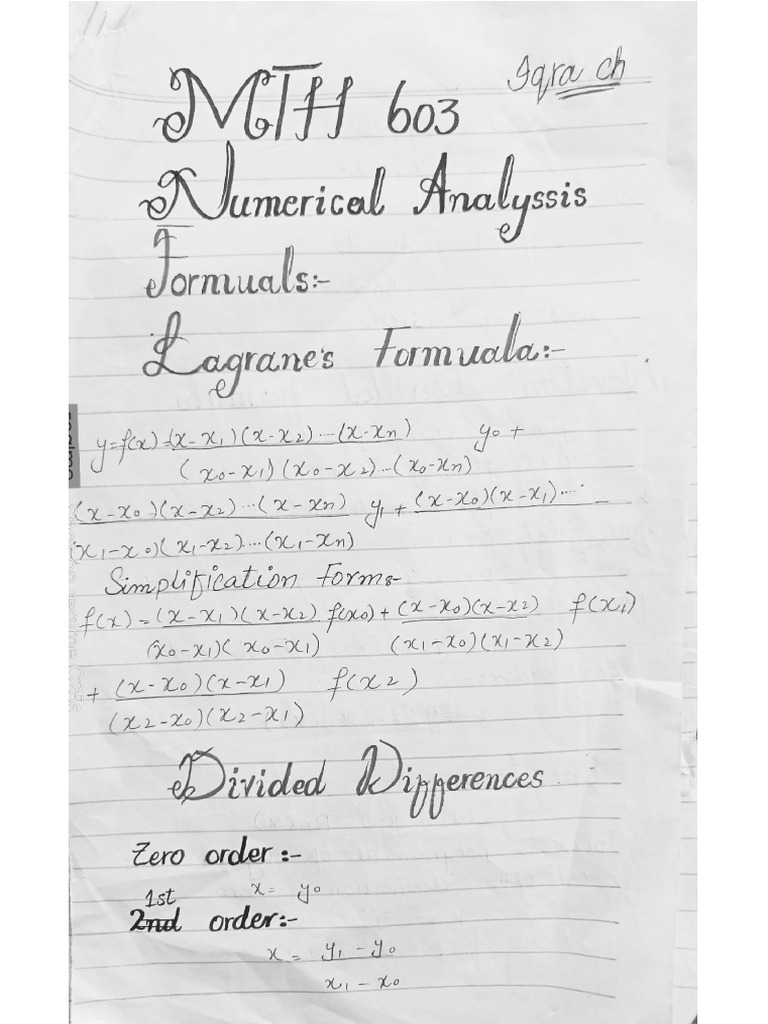 Iqra ch
MTH 603
Numerical Analyssis
Formuals:-
Lagrane's Formuala:-
y=f(x)=(x-x1)(x-x2)....(x-xn) y0 +
(x0-x1)(x0-x2)...(x0-xn)
(x-x0)(x-x2)...(x-xn) y1 + (x-x0)(x-x1)....
(x1-x0)(x1-x2)...(x1-xn)
Simplification Form:-
f(x)=(x-x1)(x-x2) f(x0)+(x-x0)(x-x2) f(x1)
(x0-x1)(x0-x1) (x1-x0)(x1-x2)
+ (x-x0)(x-x1) f(x2)
(x2-x0)(x2-x1)
Divided Differences
Zero order:-
x= y0
1st
2nd order:-
x = y1-y0
x1-x0